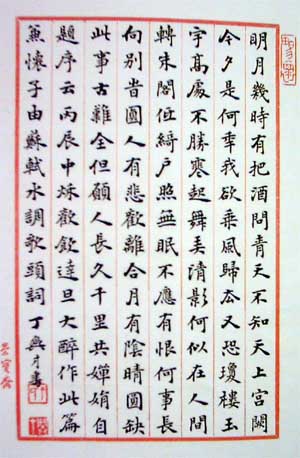 明月幾時有把酒問青天不知天上宮闕
今夕是何秊我欲乘風歸去又恐瓊樓玉
宇高處不勝寒起舞弄清影何似在人間
轉朱閣低綺戶照無眠不應有恨何事長
向別旹圓人有悲歡離合月有陰晴圓缺
此事古難全但願人長久千里共嬋娟自
題序云丙辰中秋歡飲達旦大醉作此篇
兼懷子由蘇軾水調歌頭詞 丁才書